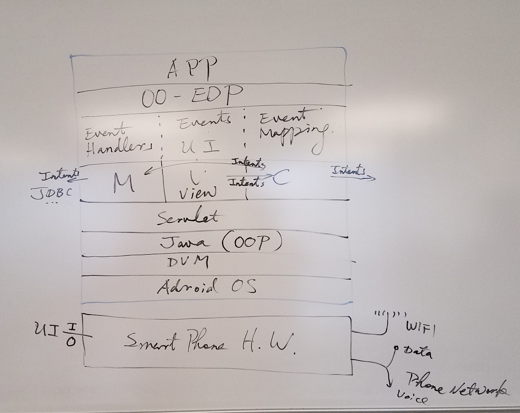 APP
OO-EDP
Event Handlers
Events UI
Event Mapping
Intents
JDBC
...
M
View
Intents
Intents
C
Intents
Servlet
Java (OOP)
DVM
Adroid OS
UI I/O
Smart Phone H.W.
WIFI
Data
Phone Network
Voice